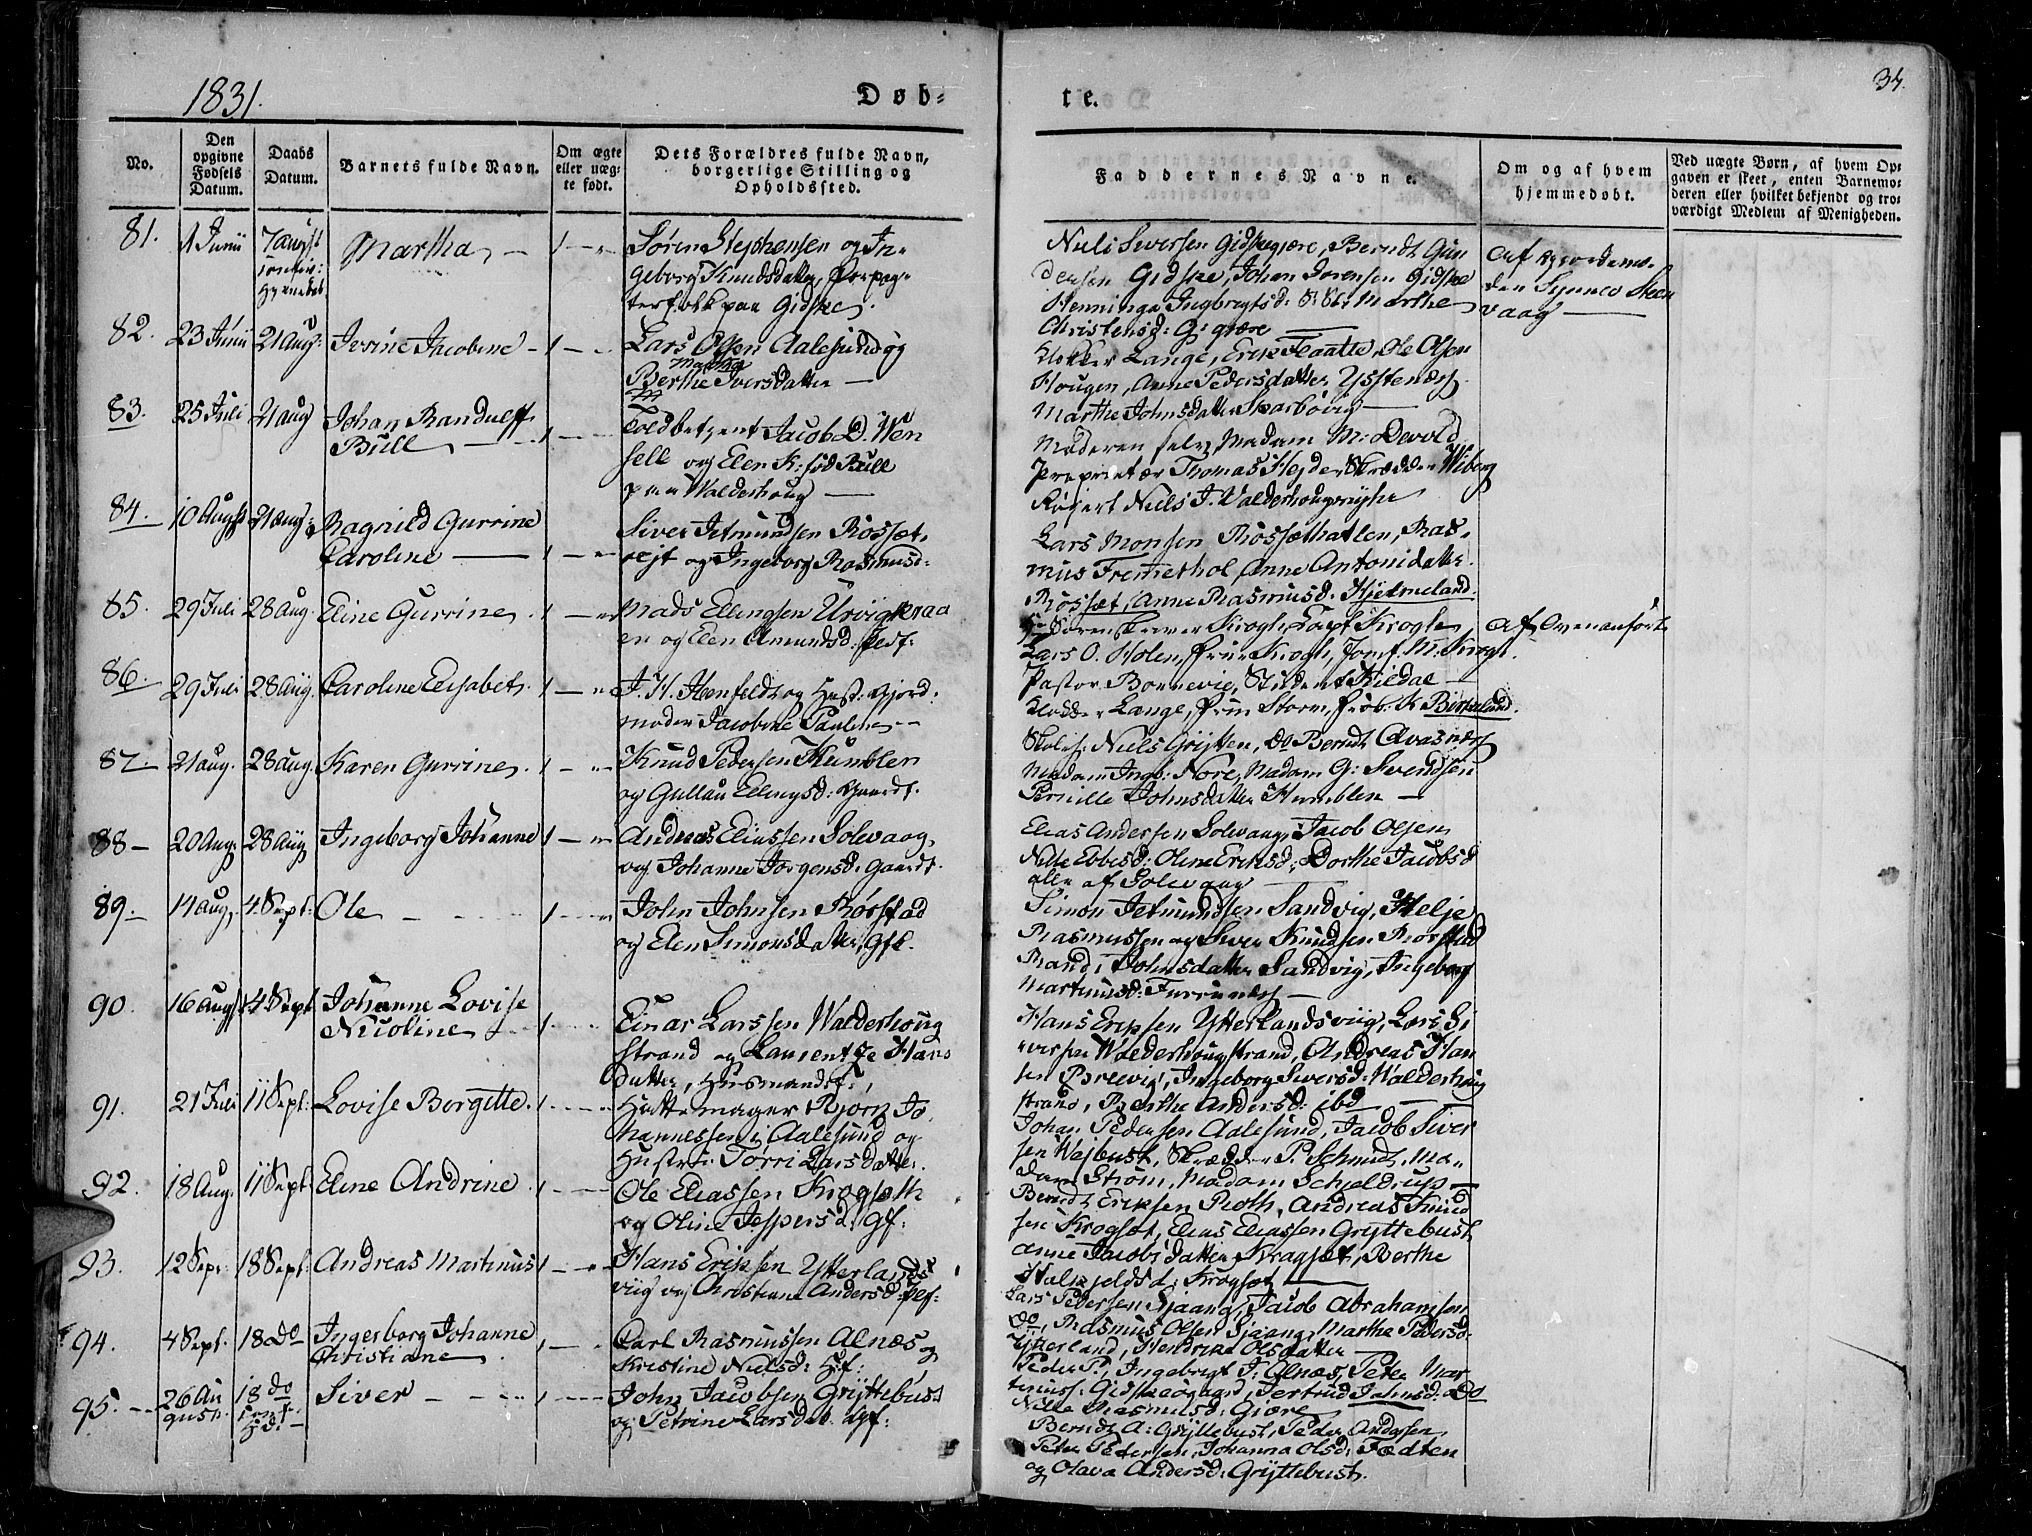 1831.
Døb-
te.
34.
No.
Den opgivne Fødsels Datum.
Daabs Datum.
Barnets fulde Navn.
Om ægte eller uægte født.
Dets Forældres fulde Navn, borgerlige Stilling og Opholdssted.
Faddernes Navne.
Om og af hvem hjemmedøbt.
Ved uægte Børn, af hvem Opgaven er skeet, enten Barnemoderen eller hvilket bekjendt og troværdigt Medlem af Menigheden.
81. 1 Junii 7 August
Martha
Søren Stephensen og In-
geborg Knudsdatter, Forpag-
terfolk paa Gidske.
Berndt Gun
dersen Gidske, Johan Sørensen Gidske
Marthe
Christensd: Gjære
82. 23 Junii 21 Aug: Ivrine Jacobine
Lars Olsen Aalesund og
Berthe Iversdatter
Klokker Lange, Erik Flaatte, Ole Olsen
Hougen, Anne Pedersdatter Ystenæs
Marthe Johnsdatter Skarbøvig
83. 25 Juli 21 Aug Johan Randulff
Bull
Toldbetjent Jacob D. Wen
sell og Elen K: fød Bull
paa Walderhoug
Moderen selv, Madam M: Devold
Proprietær Thomas Hejder Skrædder Wiberg
Niels J. Valderhougsnyhe
84. 10 August 21 Aug: Ragnild Gurrine
Caroline
Siver Jetmundsen Rossæt-
rejt og Ingeborg Rasmusd:
Lars Monsen Rossæthatlen, Ras-
mus Fremethol Anne Antonidatter
Rossæt, Anne Rasmusd: Hjelmeland.
85. 29 Juli 28 Aug. Eline Gurrine
Mads Ellingsen Urvigkraa
en og Elen Amundsd:
Sorenskriver Krogh, Capt Krogh
Lars O. Holen, Frue Krogh, Jomf. M. Krogh.
af Ovenanført
86. 29 Juli 28 Aug. Caroline Elisabet
J. H. Henfeldt og Hust: Gjord-
moder Jacobine Pauline
Pastor Bonnevie, Student Kildal
Klokker Lange, Frue Storm, Frøk: K Birkeland.
87. 21 Aug. 28 Aug. Karen Gurrine
Knud Pedersen Humblen
og Gullau Ellingsd: Gaardf.
Skolel: Niels Grytten, do Berndt Avasnæs
Madam Ingb: Nore, Madam G: Svendsen
Pernille Johnsdatter Humblen
88 20 Aug: 28 Aug Ingeborg Johanne
Andreas Eliassen Solevaag
og Johanne Jørgensd: Gaardf.
Elias Andersen Solevaag, Jacob Olsen
Nille Ebbesd: Oline Eriksd: Dorthe Jacobsd
alle af Solevaag
89. 14 Aug. 4 Sept: Ole
John Johnsen Rørstad
og Elen Simonsdatter, Gf:
Simon Jetmundsen Sandvig, Helje
Rasmussen og Siver Knudsen Rørstad
Randi Johnsdatter Sandvig, Ingeborg
Martinusd: Furrunæs
90. 16 August 4 Sept Johanne Lovise
Nicoline
Einar Larssen Walderhoug
strand og Laurentze Hans
datter, Husmandsf:
Hans Eriksen Ytterlandsviig, Lars Si
versen Walderhougstrand, Andreas Han
sen Breevig, Ingeborg Siversd: Walderhoug
strand, Berthe Andersd: ibd
91. 21 Juli 11 Sept: Lovise Borgitte.
Hattemager Bjørn Jo
hannessen i Aalesund og
Hustru Torri Larsdatter.
Johan Pedersen Aalesund, Jacob Siver
sen Wejbust, Skrædder P. Schmidt, Ma-
dam Strøm, Madam Schjeldrup
92. 18 Aug. 11 Sept. Eline Andrine
Ole Eliassen Krogsæth
og Oline Jespersd: Gf:
Berndt Eriksen Roth, Andreas Knud
sen Krogsæt, Elias Eliassen Gryttebust
Anne Jacobsdatter Krogsæt, Berthe
Krogsæt
93. 12 Sept: 18 Sept. Andreas Martinus
Hans Eriksen Ytterlands
viig og Christiane Andersd:
Lars Pedersen Gjaang, Jacob Abrahamsen
do, Rasmus Olsen Gjaang, Marthe Pedersd:
Ytterland, Hendrike Olsdatter
94. 4 Sept. 18 do Ingerborg Johanne
Christiane
Carl Rasmussen Alnæs og
Kristine Nielsd: Hf:
Peder P: Ingebregt J: Alnæs, Peter Mar
tinuss: Gidskegaard, Gertrud Johnsd: do
Nille Rasmusd: Gjære
95. 26 Au
gust. 18 do
Siver
John Jacobsen Gryttebust
og Petrine Larsdat. Gf:
Berndt A: Gryttebust, Peder Andersen
Peter Pedersen, Johanna Olsd: Fædten
og Olava Andersd: Gryttebust.